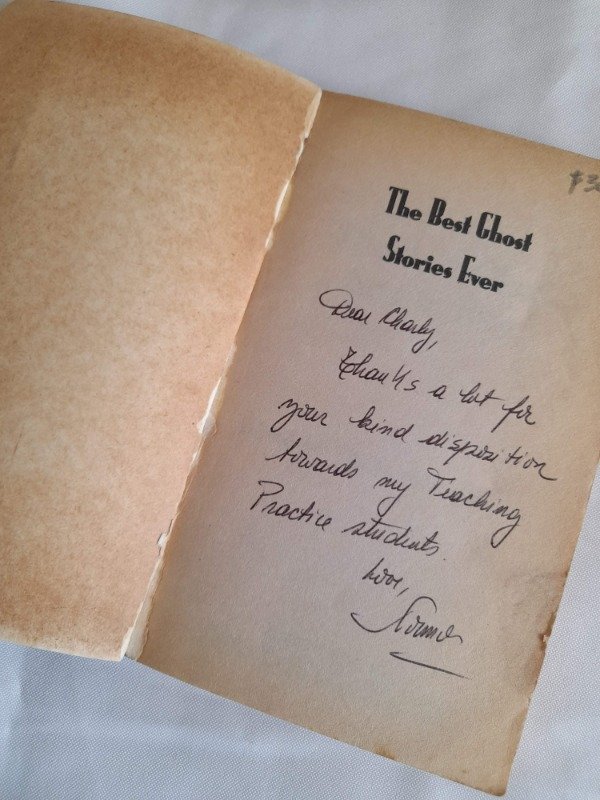 The Best Ghost
Stories Ever
Dear Charly,
Thanks a lot for
your kind disposition
towards my Teaching
Practice students.
Love,
Norma